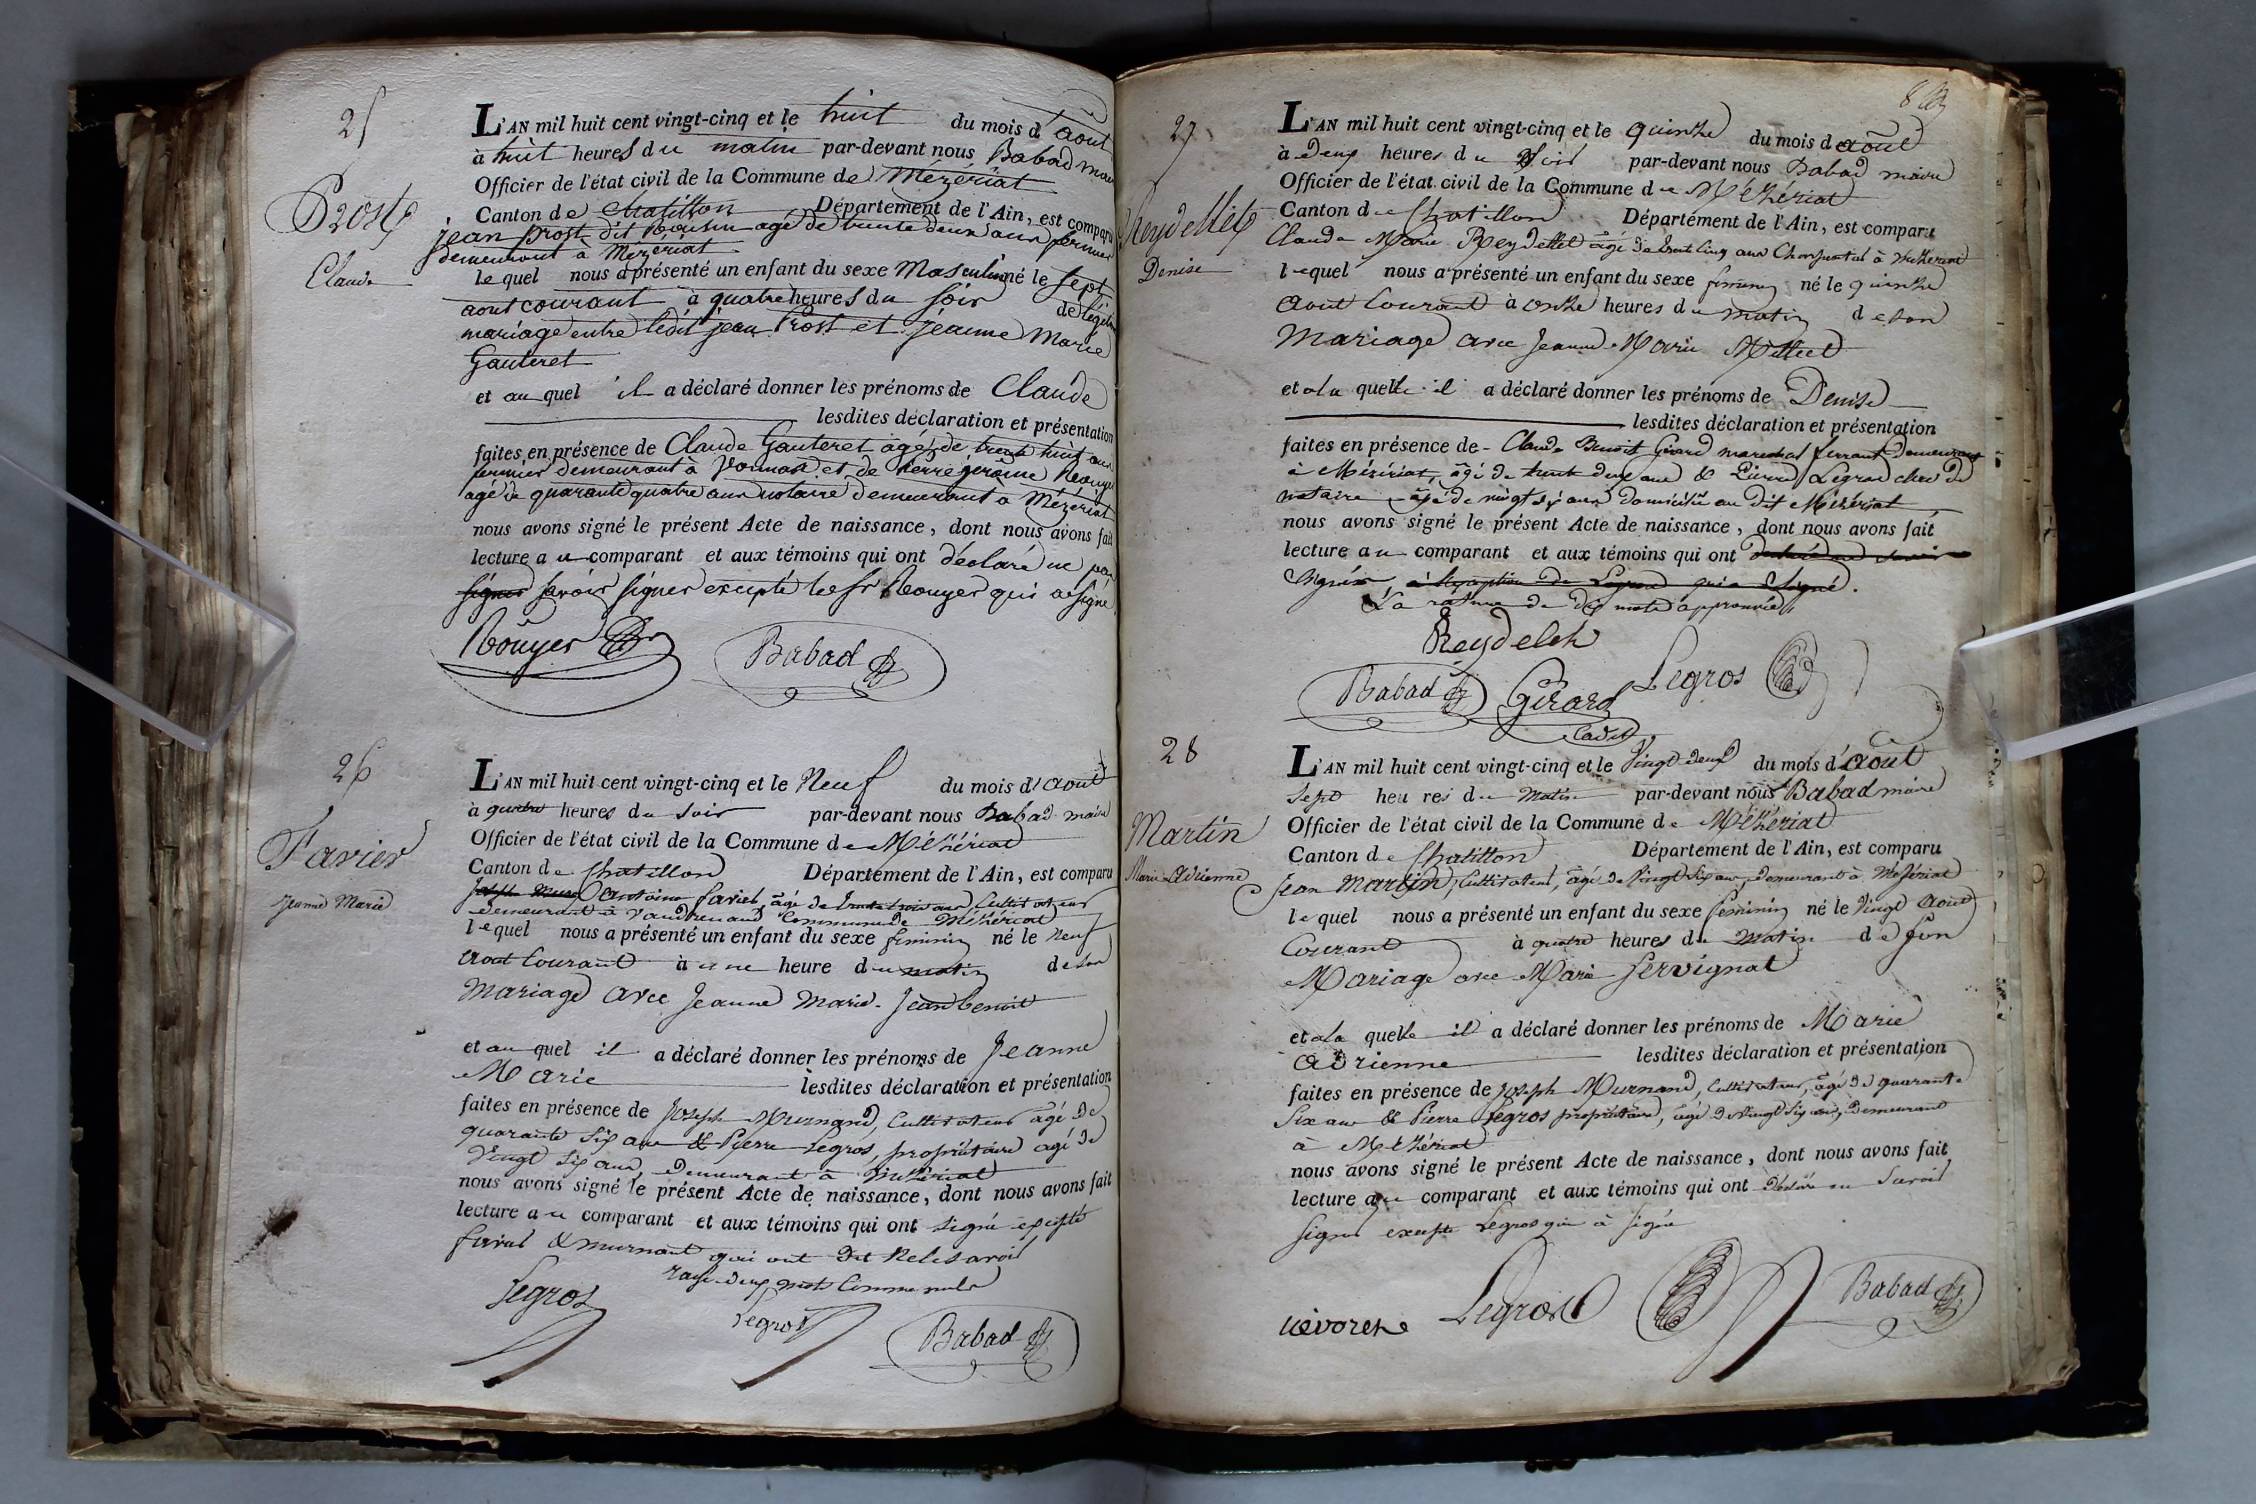 25
Prost
Claude
L'AN mil huit cent vingt-cinq et le huit du mois d'aout
à huit heures du matin par-devant nous Babad maire
Officier de l'état civil de la Commune de Mézériat
Canton de chatillon Département de l'Ain, est comparu
jean prost dit agé de trente deux ans fermier
demeurant à Mézériat
lequel nous a présenté un enfant du sexe Masculin né le sept
aout courant à quatre heures du soir de légitime
mariage entre ledit jean Prost et jeanne Marie
Gauteret
et au quel il a déclaré donner les prénoms de Claude
lesdites déclaration et présentation
faites en présence de Claude Gauteret agé de trente huit ans
fermier demeurant à Vonnas et de Pierre jerome Rouyer
agé de quarante quatre ans notaire demeurant a Mézériat
nous avons signé le présent Acte de naissance, dont nous avons fait
lecture au comparant et aux témoins qui ont déclaré ne pas
signer savoir signer excepté le sr Rouyer qui a signé
Rouyer Babad
26
Favier
Jeanne Marie
L'AN mil huit cent vingt-cinq et le Neuf du mois d'aout
à quatre heures du soir par-devant nous Babad maire
Officier de l'état civil de la Commune de Mézériat
Canton de Chatillon Département de l'Ain, est comparu
Joseph antoine favier, âgé de trente trois ans Cultivateur
demeurant à Commune de Mézériat
lequel nous a présenté un enfant du sexe feminin né le Neuf
aout Courant à une heure du matin de son
Mariage avec Jeanne Marie Jeanbenoit
et au quel il a déclaré donner les prénoms de Jeanne
Marie lesdites déclaration et présentation
faites en présence de Joseph Murnand, Cultivateur âgé de
quarante six ans & Pierre Legros, propriétaire agé de
Vingt six ans, demeurant à Mézériat
nous avons signé le présent Acte de naissance, dont nous avons fait
lecture au comparant et aux témoins qui ont signé excepté
favier & murnant qui ont dit ne le savoir
rayé deux mots comme nuls
Legros Legros Babad
27
Reydellet
Denise
L'AN mil huit cent vingt-cinq et le quinze du mois d'aout
à deux heures du soir par-devant nous Babad maire
Officier de l'état civil de la Commune de Mézériat
Canton de Chatillon Département de l'Ain, est comparu
Claude Marie Reydellet âgé de trente cinq ans Charpentier à Mézériat
lequel nous a présenté un enfant du sexe feminin né le quinze
aout Courant à onze heures du matin de son
Mariage avec Jeanne Marie Millet
et a la quelle il a déclaré donner les prénoms de Denise
lesdites déclaration et présentation
faites en présence de Claude Benoit Girard marechal ferrant demeurant
à Mézériat, âgé de trente deux ans & Pierre Legros clerc de
notaire âgé de vingt six ans domicilié au dit Mézériat
nous avons signé le présent Acte de naissance, dont nous avons fait
lecture au comparant et aux témoins qui ont
signés à l'exception de Legros qui a signé.
La rature de dix mots approuvée
Reydelet
Babad Girard Legros
Cadet
28
Martin
Marie Adrienne
L'AN mil huit cent vingt-cinq et le Vingt deux du mois d'aout
sept heures du Matin par-devant nous Babad maire
Officier de l'état civil de la Commune de Mézériat
Canton de Chatillon Département de l'Ain, est comparu
Jean Martin, Cultivateur, âgé de Vingt six ans, demeurant à Mézériat
lequel nous a présenté un enfant du sexe feminin né le Vingt Aout
Courant à quatre heures du Matin de son
Mariage avec Marie Servignat
et a la quelle il a déclaré donner les prénoms de Marie
adrienne lesdites déclaration et présentation
faites en présence de Joseph Murnand, Cultivateur, âgé de quarante
Six ans & Pierre Legros propriétaire, âgé de Vingt Six ans, demeurant
à Mézériat
nous avons signé le présent Acte de naissance, dont nous avons fait
lecture au comparant et aux témoins qui ont déclaré ne savoir
signer excepté Legros qui à signé
Legros Babad